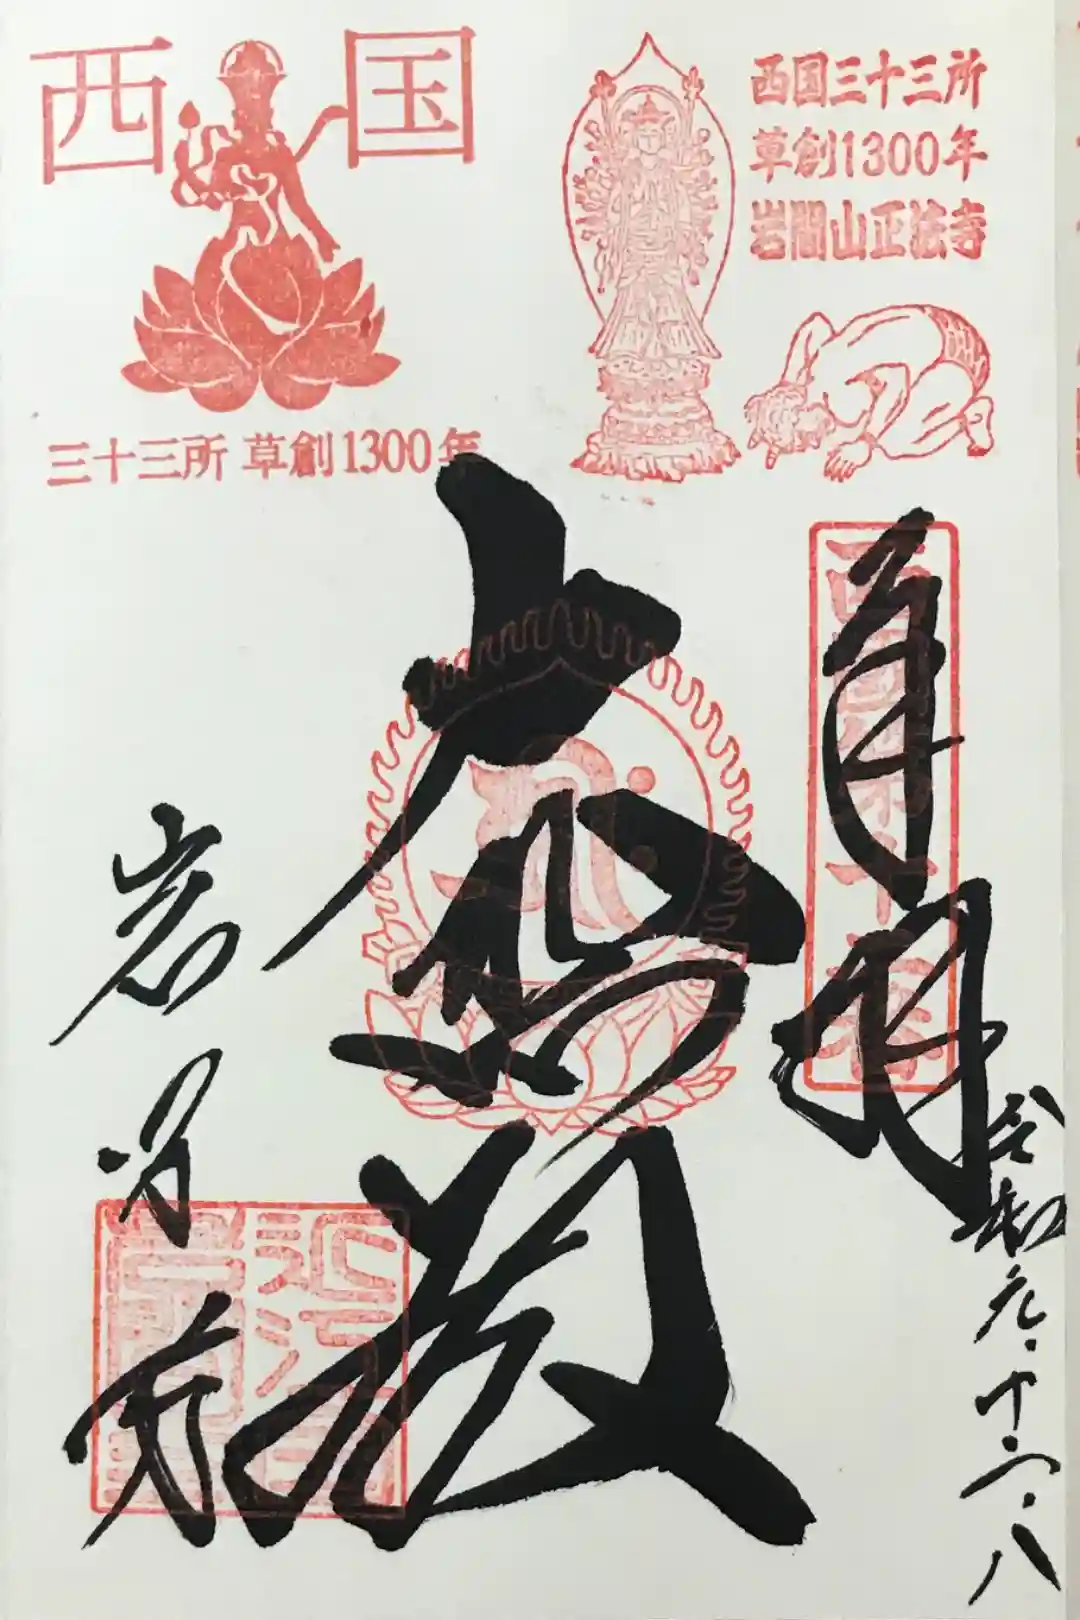 西国
三十三所 草創1300年
西国三十三所
草創1300年
岩間山正法寺
奉拝
西国第十二番
令和元.十二.八
大悲殿
岩間寺